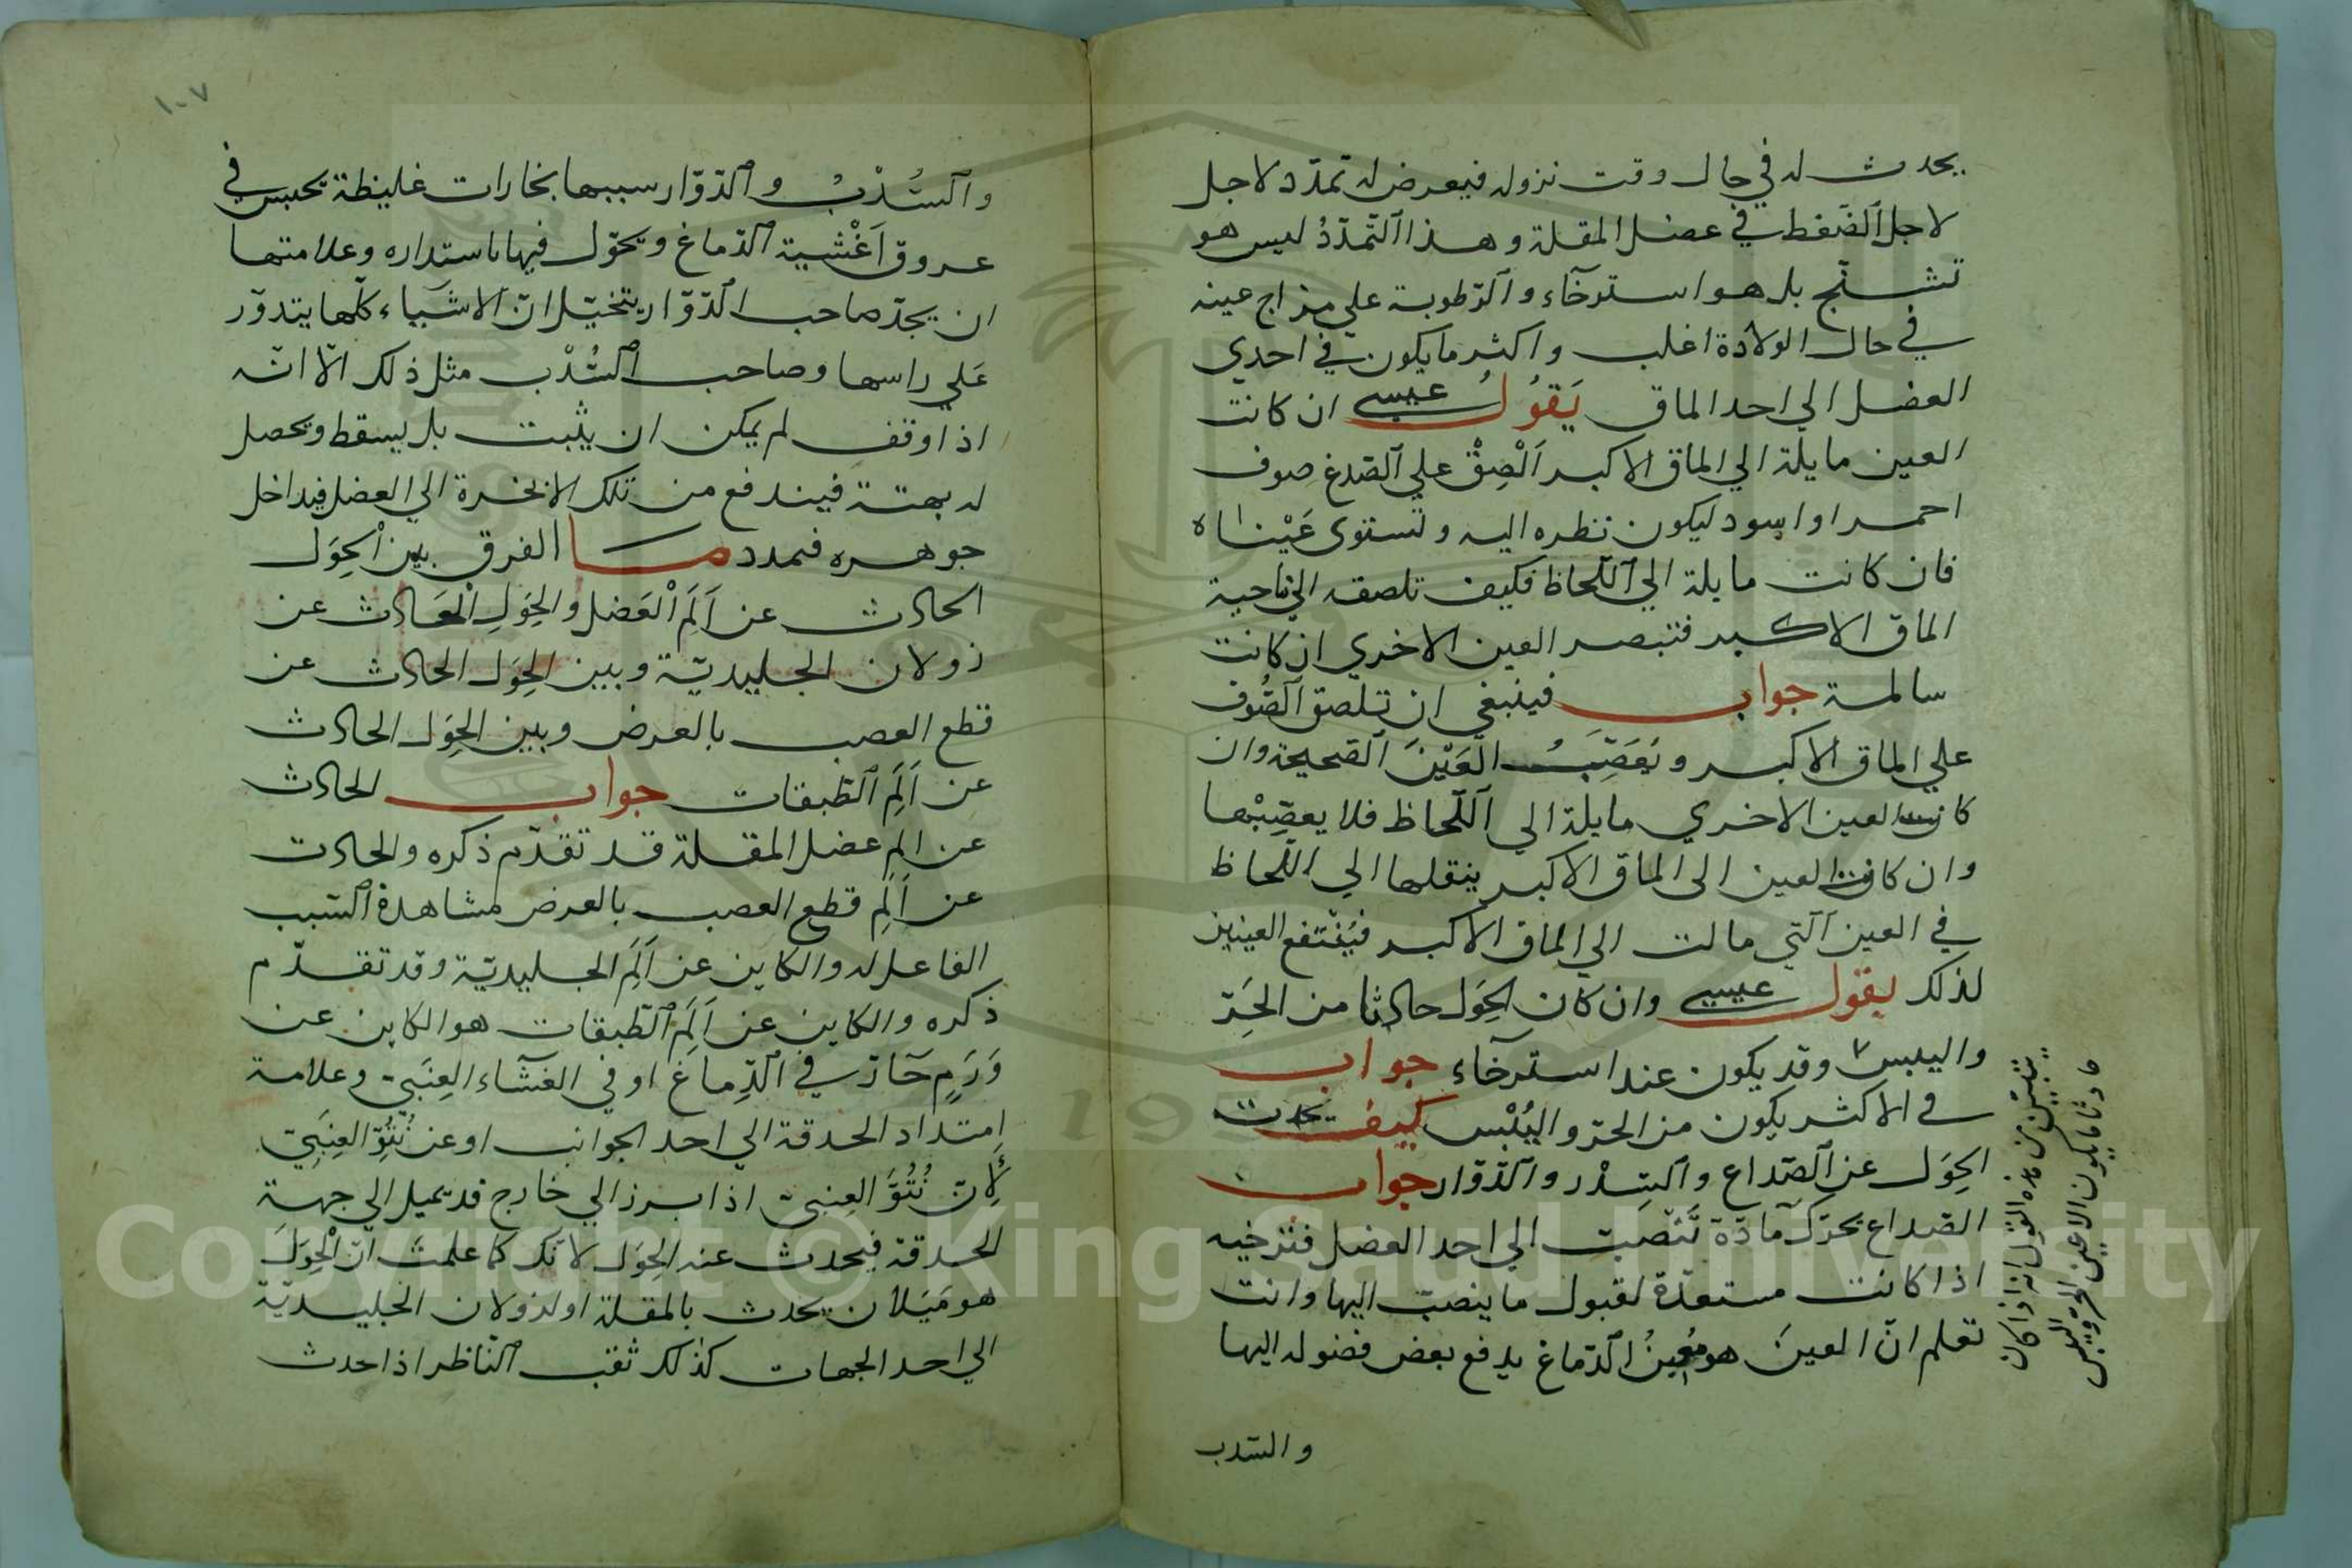 يحدث له في حال وقت نزوله فيعرض له تمدّد لاجل
لاجل ٱلضّغط في عضل المقلة وهذا ٱلتّمدّدُ ليس هو
تشنّج بل هو استرخآء وٱلرّطوبة علي مزاج عينه
في حال الولادة اغلب واكثر ما يكون في احدي
العضل الي احد الماق يَقوُلُ عيسي ان كانت
العين مايلة الي الماق الاكبر اَلْصِقْ علي ٱلصّدغ صوف
احمر او اسود ليكون نظره اليه وتستوى عَيْناه
فان كانت مايلة الي ٱللّحاظ فكيف تلصقه الي ناحية
الماق الاكبر فتبصر العين الاخري ان كانت
سالمة جواب فينبغي ان تلصق ٱلصُّوف
علي الماق الاكبر وتَعَصِّبُ العَيْنَ ٱلصّحيحة وان
كانت العين الاخري مايلة الي ٱللّحاظ فلا يعصِّبْها
وان كانت العين الى الماق الاكبر ينقلها الي اللّحاظ
في العين ٱلّتي مالت الي الماق الاكبر فيُنْتفع العينين
لذلك يقول عيسي وان كان الحِوَل حادثا من الحَرّ
واليبس وقد يكون عند استرخآء جواب
في الاكثر يكون من الحرّ واليُبْس كيف يحدث
الحِوَل عن ٱلصّداع وٱلسّدْر وٱلدّوّار جواب
الصّداع يحرّك مآدّة تَنْصَبّ الي احد العضل فترخيه
اذا كانت مستعدّة لقبول ما ينصبّ اليها وانت
تعلم انّ العينَ هو مُعِينُ ٱلدّماغ يدفع بعض فضوله اليها
يتبيّن من هذه القول انه اذا كان
حادثا ما يكون الا عين الحرّ ويبس
اليبس
والسّدب
١٠٧
وٱلسُّدْبُ وٱلدّوّار سببها بخارات غليظة تحبس في
عروق اَغْشية ٱلدّماغ وتحوّل فيها باستداره وعلامتها
ان يجدّ صاحب ٱلدّوّار يتخيّل انّ الاشياء كلّها يتدوّر
عَلي راسها وصاحب ٱلسُّدْب مثل ذلك الّا انّه
اذا وقف لم يمكن ان يثبت بل يسقط ويحصل
له بهتة فيندفع من تلك الابخرة الي العضل فيداخل
جوهره فمدد ما الفرق بين اْلحِوَل
الحادث عن اَلَمِ اْلعَضل والحِوَلِ الْحَادث عن
زولان الجليديّة وبين الحِوَل الحادث عن
قطع العصب بالعرض وبين الحِوَل الحادث
عن اَلَمِ ٱلطّبقات جواب الحادث
عن الم عضل المقلة قد تقدّم ذكره والحادث
عن اَلَمِ قطع العصب بالعرض مشاهدة ٱلسّبب
الفاعل له والكاين عن اَلَمِ الجليديّة وقد تقدّم
ذكره والكاين عن اَلَمِ ٱلطّبقات هو الكاين عن
وَرَمٍ حَآرّ في ٱلدّماغ او في الغشآء العِنَبيّ وعلامة
امتداد الحدقة الي احد الجوانب او عن نُتُوّ العِنَبِيّ
لِأَنّ نُتُوَّ العِنبيّ اذا برز الي خارج قد يميل الي جهة
الحدقة فيحدث عنه الحِوَل لانّك كما علمتَ انّ اْلحِوَلَ
هو مَيَلان يحدث بالمقلة او لزولان الجليديّة
الي احد الجهات كذلك ثقب ٱلنّاظر اذا حدث
Copyright © King Saud University
195